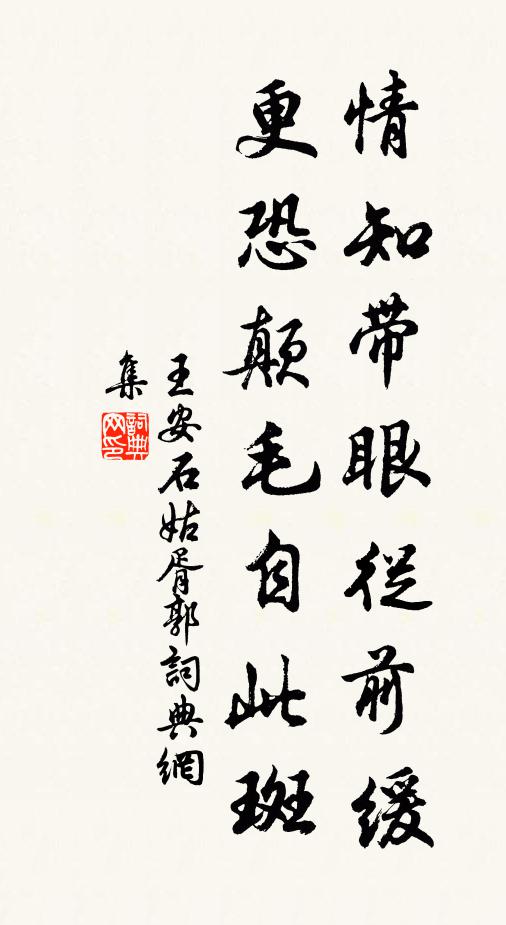 情知带眼從前緩
更恐顛毛自此斑
王安石姑胥郭詞典網
集
詞典網印